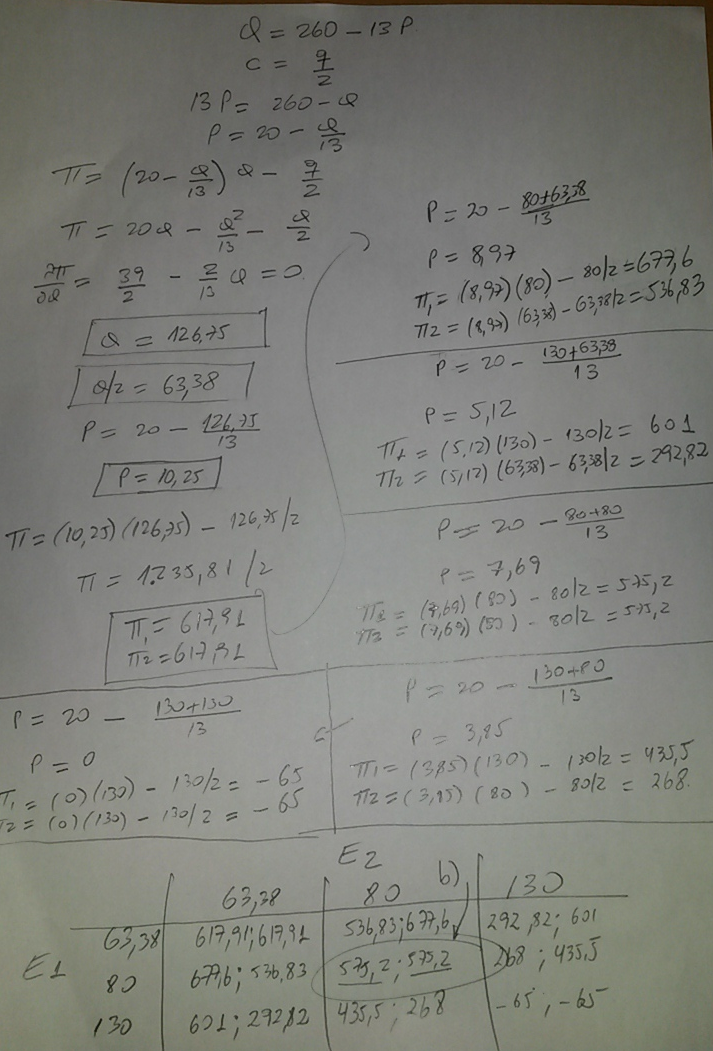 Q = 260 - 13P
C = q/2
13P = 260 - Q
P = 20 - Q/13
π = (20 - Q/13) Q - q/2
π = 20Q - Q²/13 - Q/2
∂π/∂Q = 39/2 - 2/13 Q = 0
Q = 126,75
Q/2 = 63,38
P = 20 - 126,75/13
P = 10,25
π = (10,25)(126,75) - 126,75/2
π = 1.235,81/2
π1 = 617,91
π2 = 617,91
P = 20 - (80+63,38)/13
P = 8,97
π1 = (8,97)(80) - 80/2 = 677,6
π2 = (8,97)(63,38) - 63,38/2 = 536,83
P = 20 - (130+63,38)/13
P = 5,12
π1 = (5,12)(130) - 130/2 = 601
π2 = (5,12)(63,38) - 63,38/2 = 292,82
P = 20 - (80+80)/13
P = 7,69
π1 = (7,69)(80) - 80/2 = 575,2
π2 = (7,69)(80) - 80/2 = 575,2
P = 20 - (130+130)/13
P = 0
π1 = (0)(130) - 130/2 = -65
π2 = (0)(130) - 130/2 = -65
P = 20 - (130+80)/13
P = 3,85
π1 = (3,85)(130) - 130/2 = 435,5
π2 = (3,85)(80) - 80/2 = 268.
E2
63,38 80 b) 130
63,38 617,91;617,91 536,83;677,6 292,82; 601
E1
80 677,6; 536,83 575,2; 575,2 268; 435,5
130 601; 292,82 435,5; 268 -65; -65